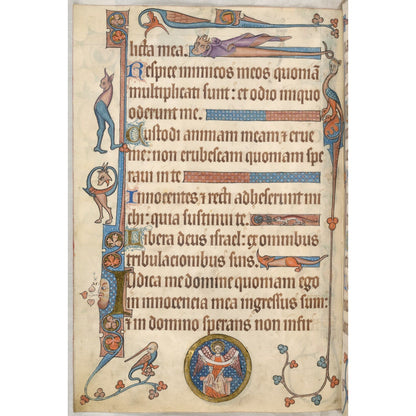 licta mea.
Respice inimicos meos quoniã
multiplicati sunt: et odio iniquo
oderunt me.
Custodi animam meam et erue
me: non erubescam quoniam spe
raui in te
Innocentes et recti adheserunt mi
chi: quia sustinui te.
Libera deus israel: ex omnibus
tribulacionibus suis.
Iudica me domine quoniam ego
in innocencia mea ingressus sum:
et in domino sperans non infir